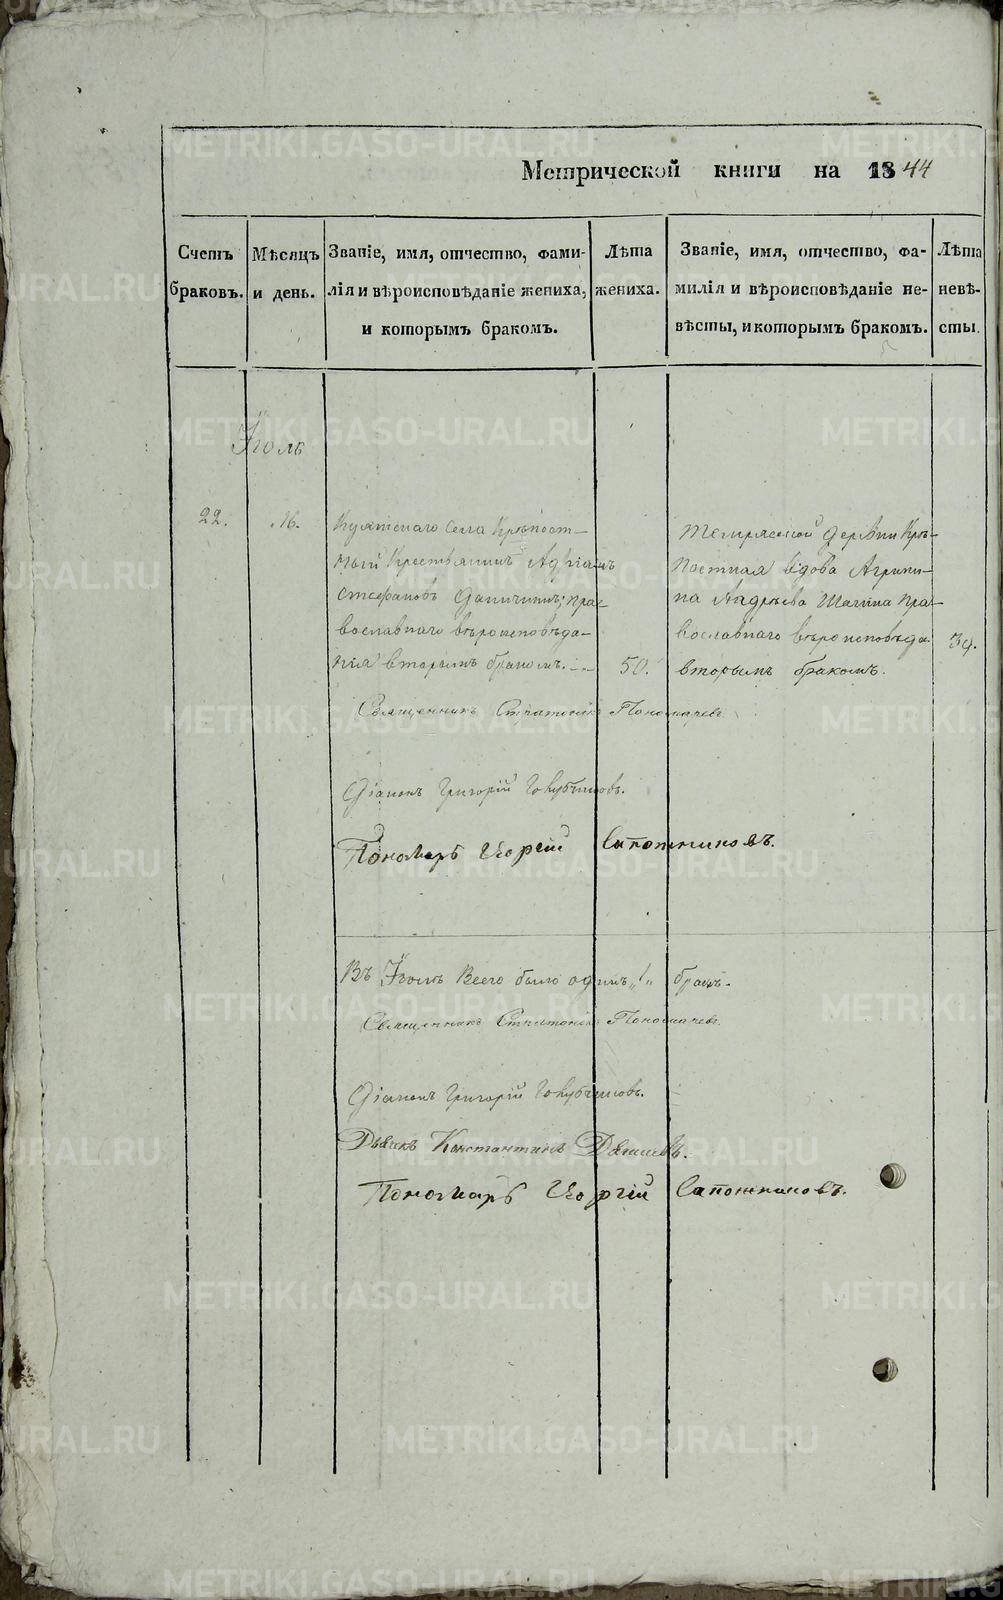 Метрической книги на 1844
Счетъ браковъ.
Мѣсяцъ и день.
Званіе, имя, отчество, фами-
лія и вѣроисповѣданіе жениха,
и которымъ бракомъ.
Лѣта жениха.
Званіе, имя, отчество, фа-
милія и вѣроисповѣданіе не-
вѣсты, и которымъ бракомъ.
Лѣта невѣ-
сты.
Іюль
22.
16.
села Крѣпост-
ный Крестьянинъ Адріанъ
Стефановъ пра-
вославнаго вѣроисповѣда-
нія вторымъ бракомъ.
50.
деревни Крѣ-
постная вдова Агрипи-
на Андреева Шагина пра-
вославнаго вѣроисповѣда.
вторымъ бракомъ.
39.
Священникъ Стратоникъ Пономаревъ
Діаконъ Григорій
Пономарь Георгій Сапожниковъ.
Въ Іюлѣ Всего было одинъ „1„ бракъ.
Священникъ Стратоникъ Пономаревъ.
Діаконъ Григорій
Дьячкъ Константинъ
Пономарь Георгій Сапожниковъ.
METRIKI.GASO-URAL.RU